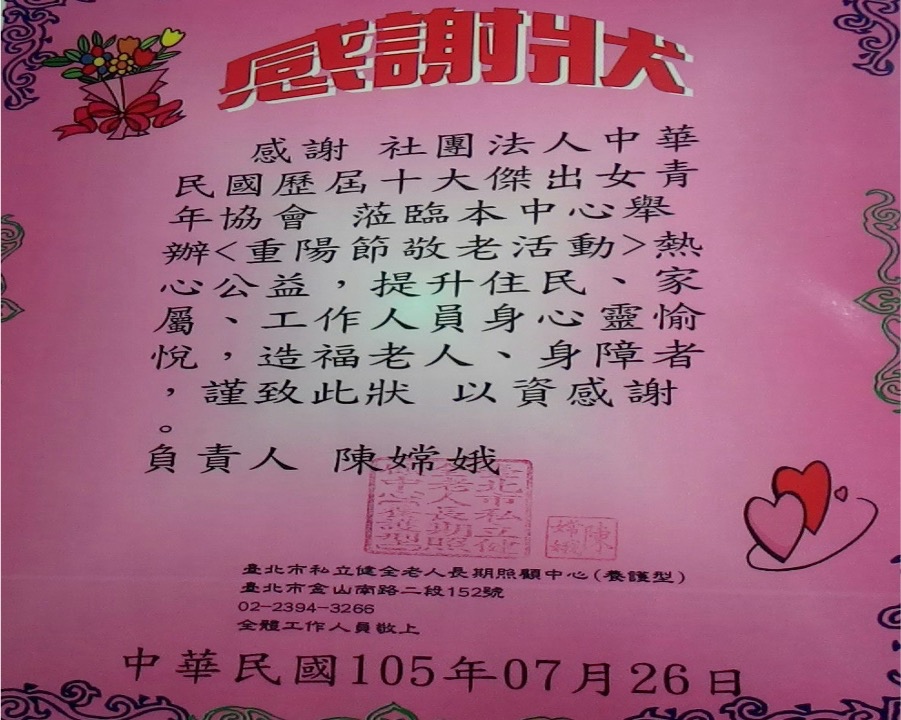 感謝狀
感謝 社團法人中華
民國歷屆十大傑出女青
年協會 蒞臨本中心舉
辦<重陽節敬老活動>熱
心公益，提升住民、家
屬、工作人員身心靈愉
悅，造福老人、身障者
，謹致此狀 以資感謝
。
負責人 陳嫦娥
北市私立健
老人長期照
中心養護型
陳
嫦娥
臺北市私立健全老人長期照顧中心(養護型)
臺北市金山南路二段152號
02-2394-3266
全體工作人員敬上
中華民國105年07月26日